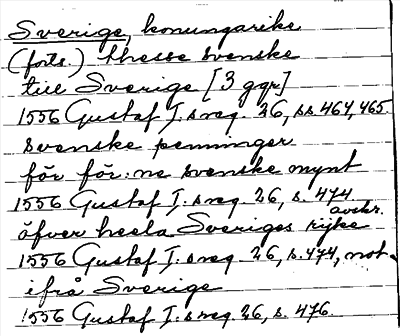 Sverige, konungarike
(forts.) thesse svenske
till Sverige [3 ggr]
1556 Gustaf I:s reg. 26, ss. 464, 465
svenske penninger
för för:ne svenske mynt
1556 Gustaf I:s reg. 26, s. 474
avskr.
öfver heela Sveriges rijke
1556 Gustaf I:s reg. 26, s. 474, not
ifrå Sverige
1556 Gustaf I:s reg. 26, s. 476